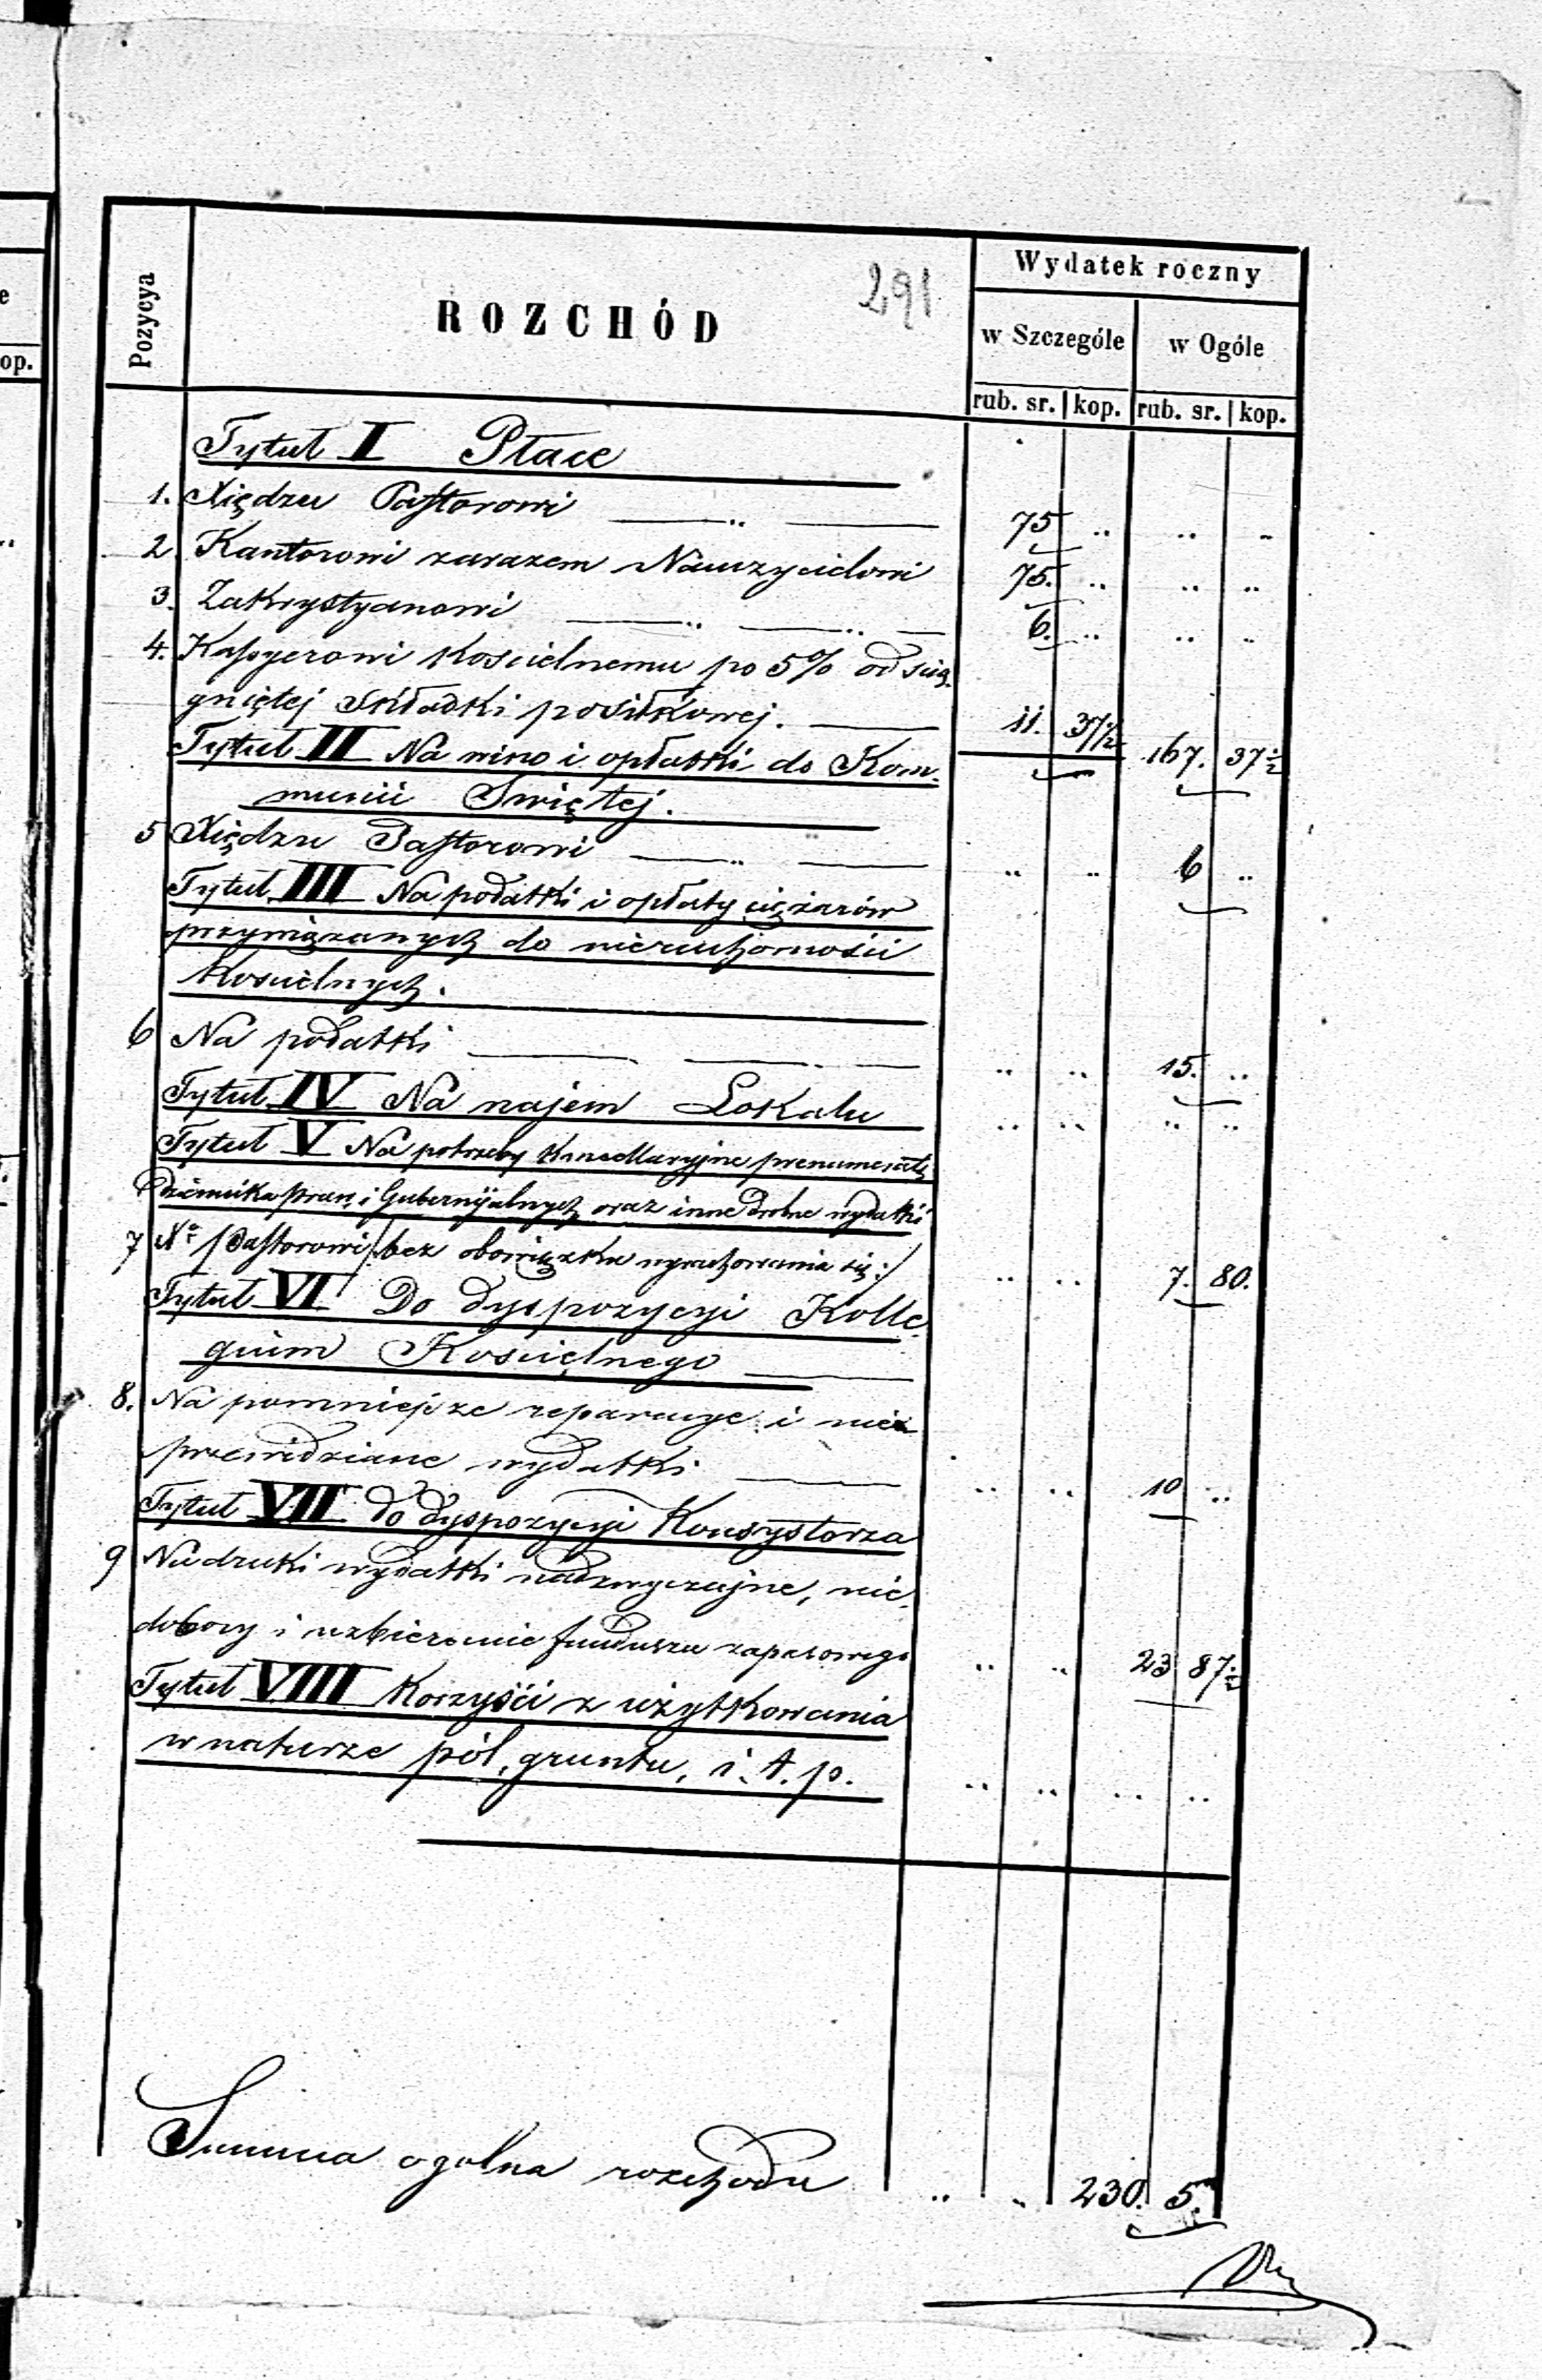 e
op.
291
Pozycya
ROZCHÓD
Wydatek roczny
w Szczególe
w Ogóle
rub. sr. kop. rub. sr. kop.
Tytuł I Płace
1. Xiędzu Pastorowi 75 .. .. ..
2. Kantorowi zarazem Nauczycielowi 75. .. .. ..
3. Zakrystyanowi 6. .. .. ..
4. Kassyerowi Kościelnemu po 5% od ścią-
gniętej składki posiłkowej. 11. 37½ 167. 37½
Tytuł II Na wino i opłatki do Kom-
munii Świętej.
5 Xiędzu Pastorowi .. .. 6 ..
Tytuł III Na podatki i opłaty ciężarów
przywiązanych do nieruchomości
Kościelnych.
6 Na podatki .. .. 15. ..
Tytuł IV Na najem Lokalu .. .. .. ..
Tytuł V Na potrzeby Kancellaryjne prenumeratę
Dziennika praw i Gubernijalnych oraz inne drobne wydatki
7 Xº Pastorowi /:bez obowiązku wyrachowania się:/ .. .. 7. 80.
Tytuł VI Do dyspozycyi Kolle-
gium Kościelnego
8. Na pomniejsze reparacye i nie
przewidziane wydatki .. .. 10 ..
Tytuł VII do dyspozycyi Konsystorza
9 Na druki wydatki nadzwyczajne, nie-
dobory i uzbieranie funduszu zapasowego .. .. 23 87½
Tytuł VIII Korzyści z użytkowania
w naturze pól, gruntu, i. t. p. .. .. .. ..
Summa ogolna rozchodu .. .. 230. 5.